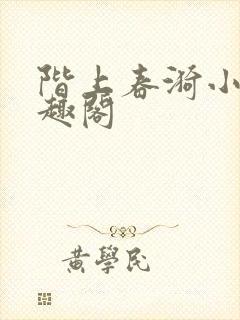 階上春漪小
趣閣
黄學民